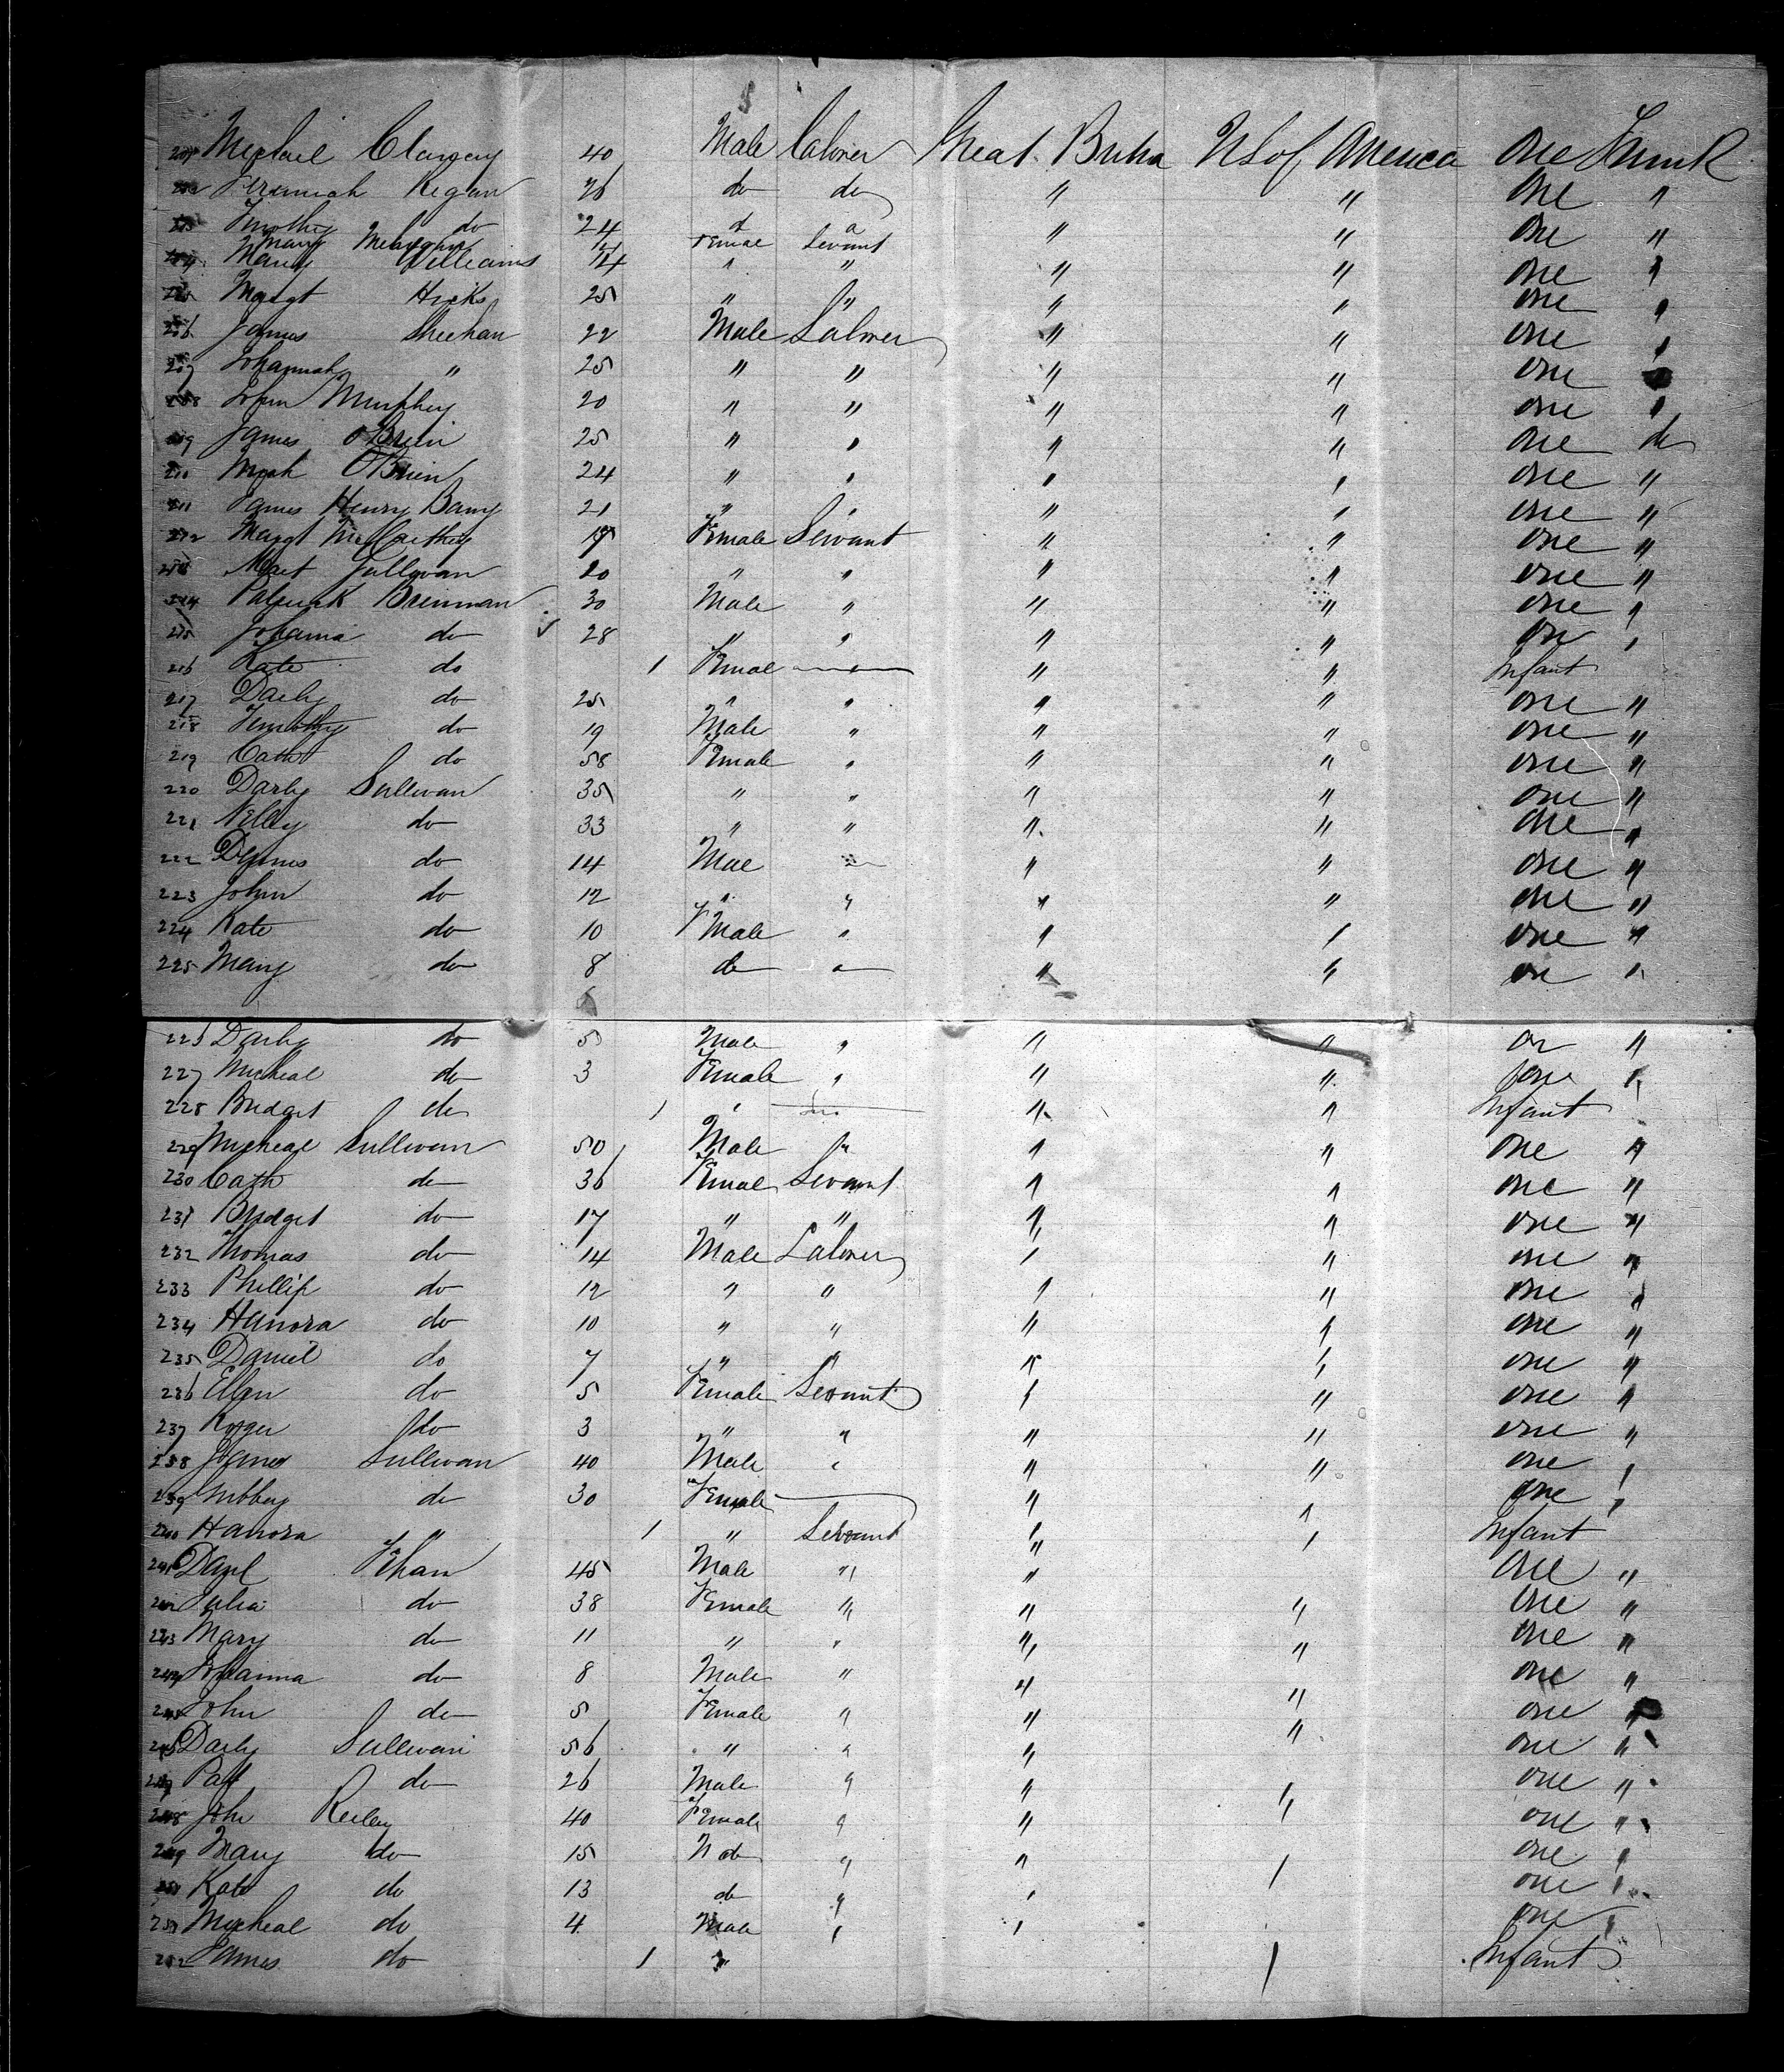 201 Michael Clancey 40 Male Laborer Great Britn US of America One Trunk
202 Jeremiah Regan 26 do do " " One "
203 Timothy do 24 d o " " One "
Mary Female Servant
204 Mary Williams 14 " " " " One "
205 Margt Hicks 25 " " " " One "
206 James Sheehan 22 Male Laborer " " One "
207 Johannah " 25 " " " " One
208 John Murphey 20 " " " " One "
209 James OBrien 25 " " " " One do
210 Mich OBrien 24 " " " " One "
211 James Henry Barry 21 " " " " One "
212 Margt McCarthey 19 Female Servant " " One "
213 Mart Sullivan 20 " " " " One "
214 Patrick Brennan 30 Male " " " One "
215 Johanna do 28 " " " " On "
216 Kate do 1 Femal " " Infant
217 Darby do 25 " " " " One "
218 Timothy do 19 Male " " " One "
219 Cath do 58 Female " " " One "
220 Darby Sullivan 35 " " " " One "
221 Nelly do 33 " " " " One "
222 Dennis do 14 Mae " " One "
223 John do 12 " " " " One "
224 Kate do 10 FMale " " " One "
225 Mary do 8 do " " " on "
226 Darby do 5 Male " " " on "
227 Micheal do 3 Female " " " one "
228 Bridget do 1 " " " Infant
229 Micheal Sullivan 50 Male " " " One "
230 Cath do 36 Femal Servant " " One "
231 Bridget do 17 " " " " One "
232 Thomas do 14 Male Laborer " " One "
233 Phillip do 12 " " " " One "
234 Hanora do 10 " " " " One "
235 Daniel do 7 " " " " One "
236 Ellen do 5 Female Servant " " One "
237 Roger do 3 " " " " One "
238 James Sullivan 40 Male " " " One "
239 do 30 Female " " One "
240 Hanora " 1 " Servant " " Infant
241 Danl Fihan 45 Male " " One "
242 Julia do 38 Female " " " One "
243 Mary do 11 " " " " One "
244 Johanna do 8 Male " " " One "
245 John do 5 Female " " " One "
246 Darby Sullivan 56 " " " One "
247 Pat do 26 Male " " " One "
248 John Reiley 40 Female " " " One "
249 Mary do 15 do " " " One "
250 Kate do 13 do " " One "
251 Micheal do 4 Male " " One "
252 James do 1 " " Infant "